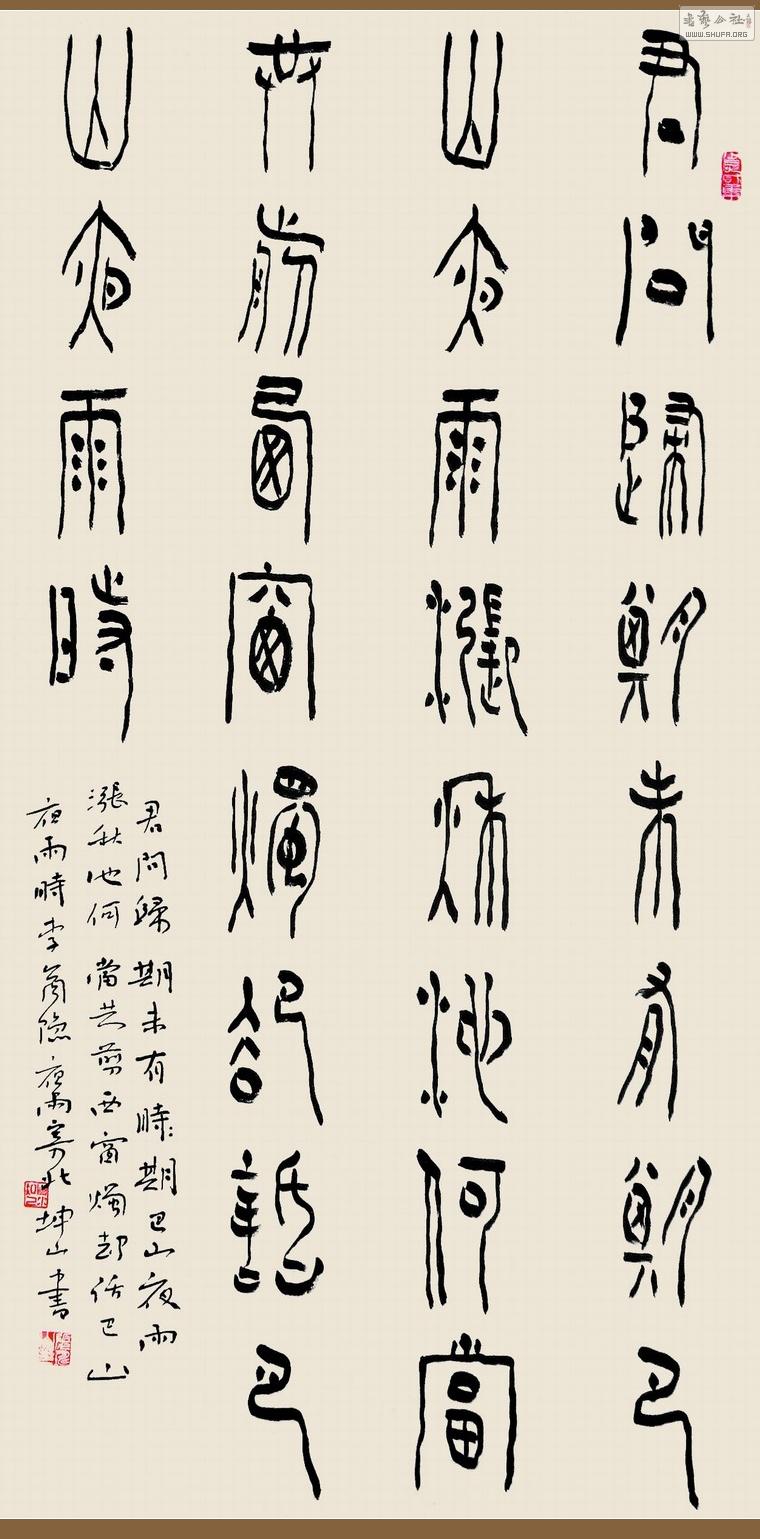 君問歸期未有期巴
山夜雨漲秋池何當
共剪西窗燭卻話巴
山夜雨時
君問歸期未有時期巴山夜雨
漲秋池何當共剪西窗燭却话巴山
夜雨時李商隐夜雨寄北坤山書
書藝公社
WWW.SHUFA.ORG